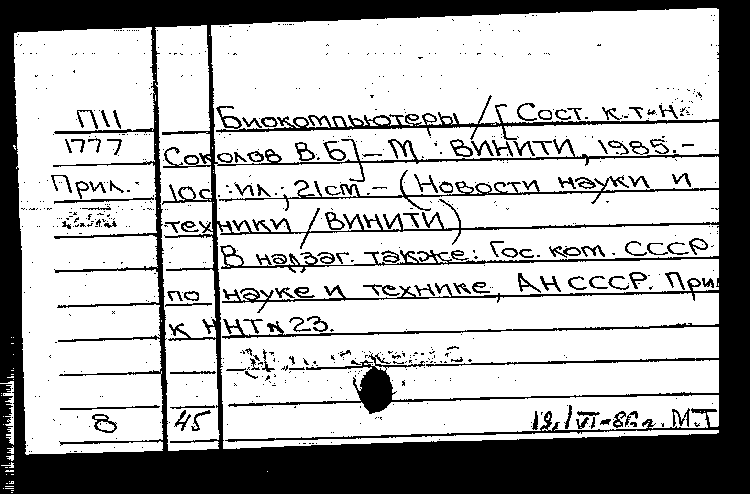 П11 Биокомпьютеры / [Сост. к.т.н.
1777 Соколов В.Б] – М. : ВИНИТИ, 1985. –
Прил. 10с. : ил.; 21см. – (Новости науки и
техники / ВИНИТИ)
В надзаг. также: Гос. ком. СССР
по науке и технике, АН СССР. Прил
к ННТ № 23.
8 45 12/VI-86г. М.Т